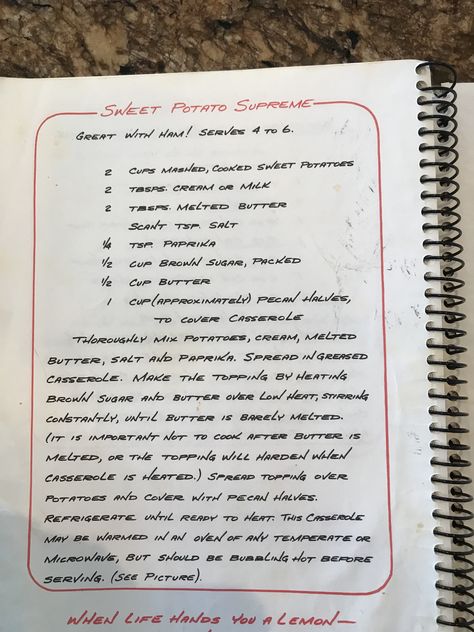 Sweet Potato Supreme
Great with Ham! Serves 4 to 6.
2 cups mashed, cooked sweet potatoes
2 tbsps. cream or milk
2 tbsps. melted butter
scant tsp. salt
¼ tsp. paprika
½ cup brown sugar, packed
½ cup butter
1 cup (approximately) pecan halves,
to cover casserole
Thoroughly mix potatoes, cream, melted
butter, salt and paprika. Spread in greased
casserole. Make the topping by heating
brown sugar and butter over low heat, stirring
constantly, until butter is barely melted.
(It is important not to cook after butter is
melted, or the topping will harden when
casserole is heated.) Spread topping over
potatoes and cover with pecan halves.
Refrigerate until ready to heat. This casserole
may be warmed in an oven of any temperate or
microwave, but should be bubbling hot before
serving. (See Picture).
When Life Hands You a Lemon—